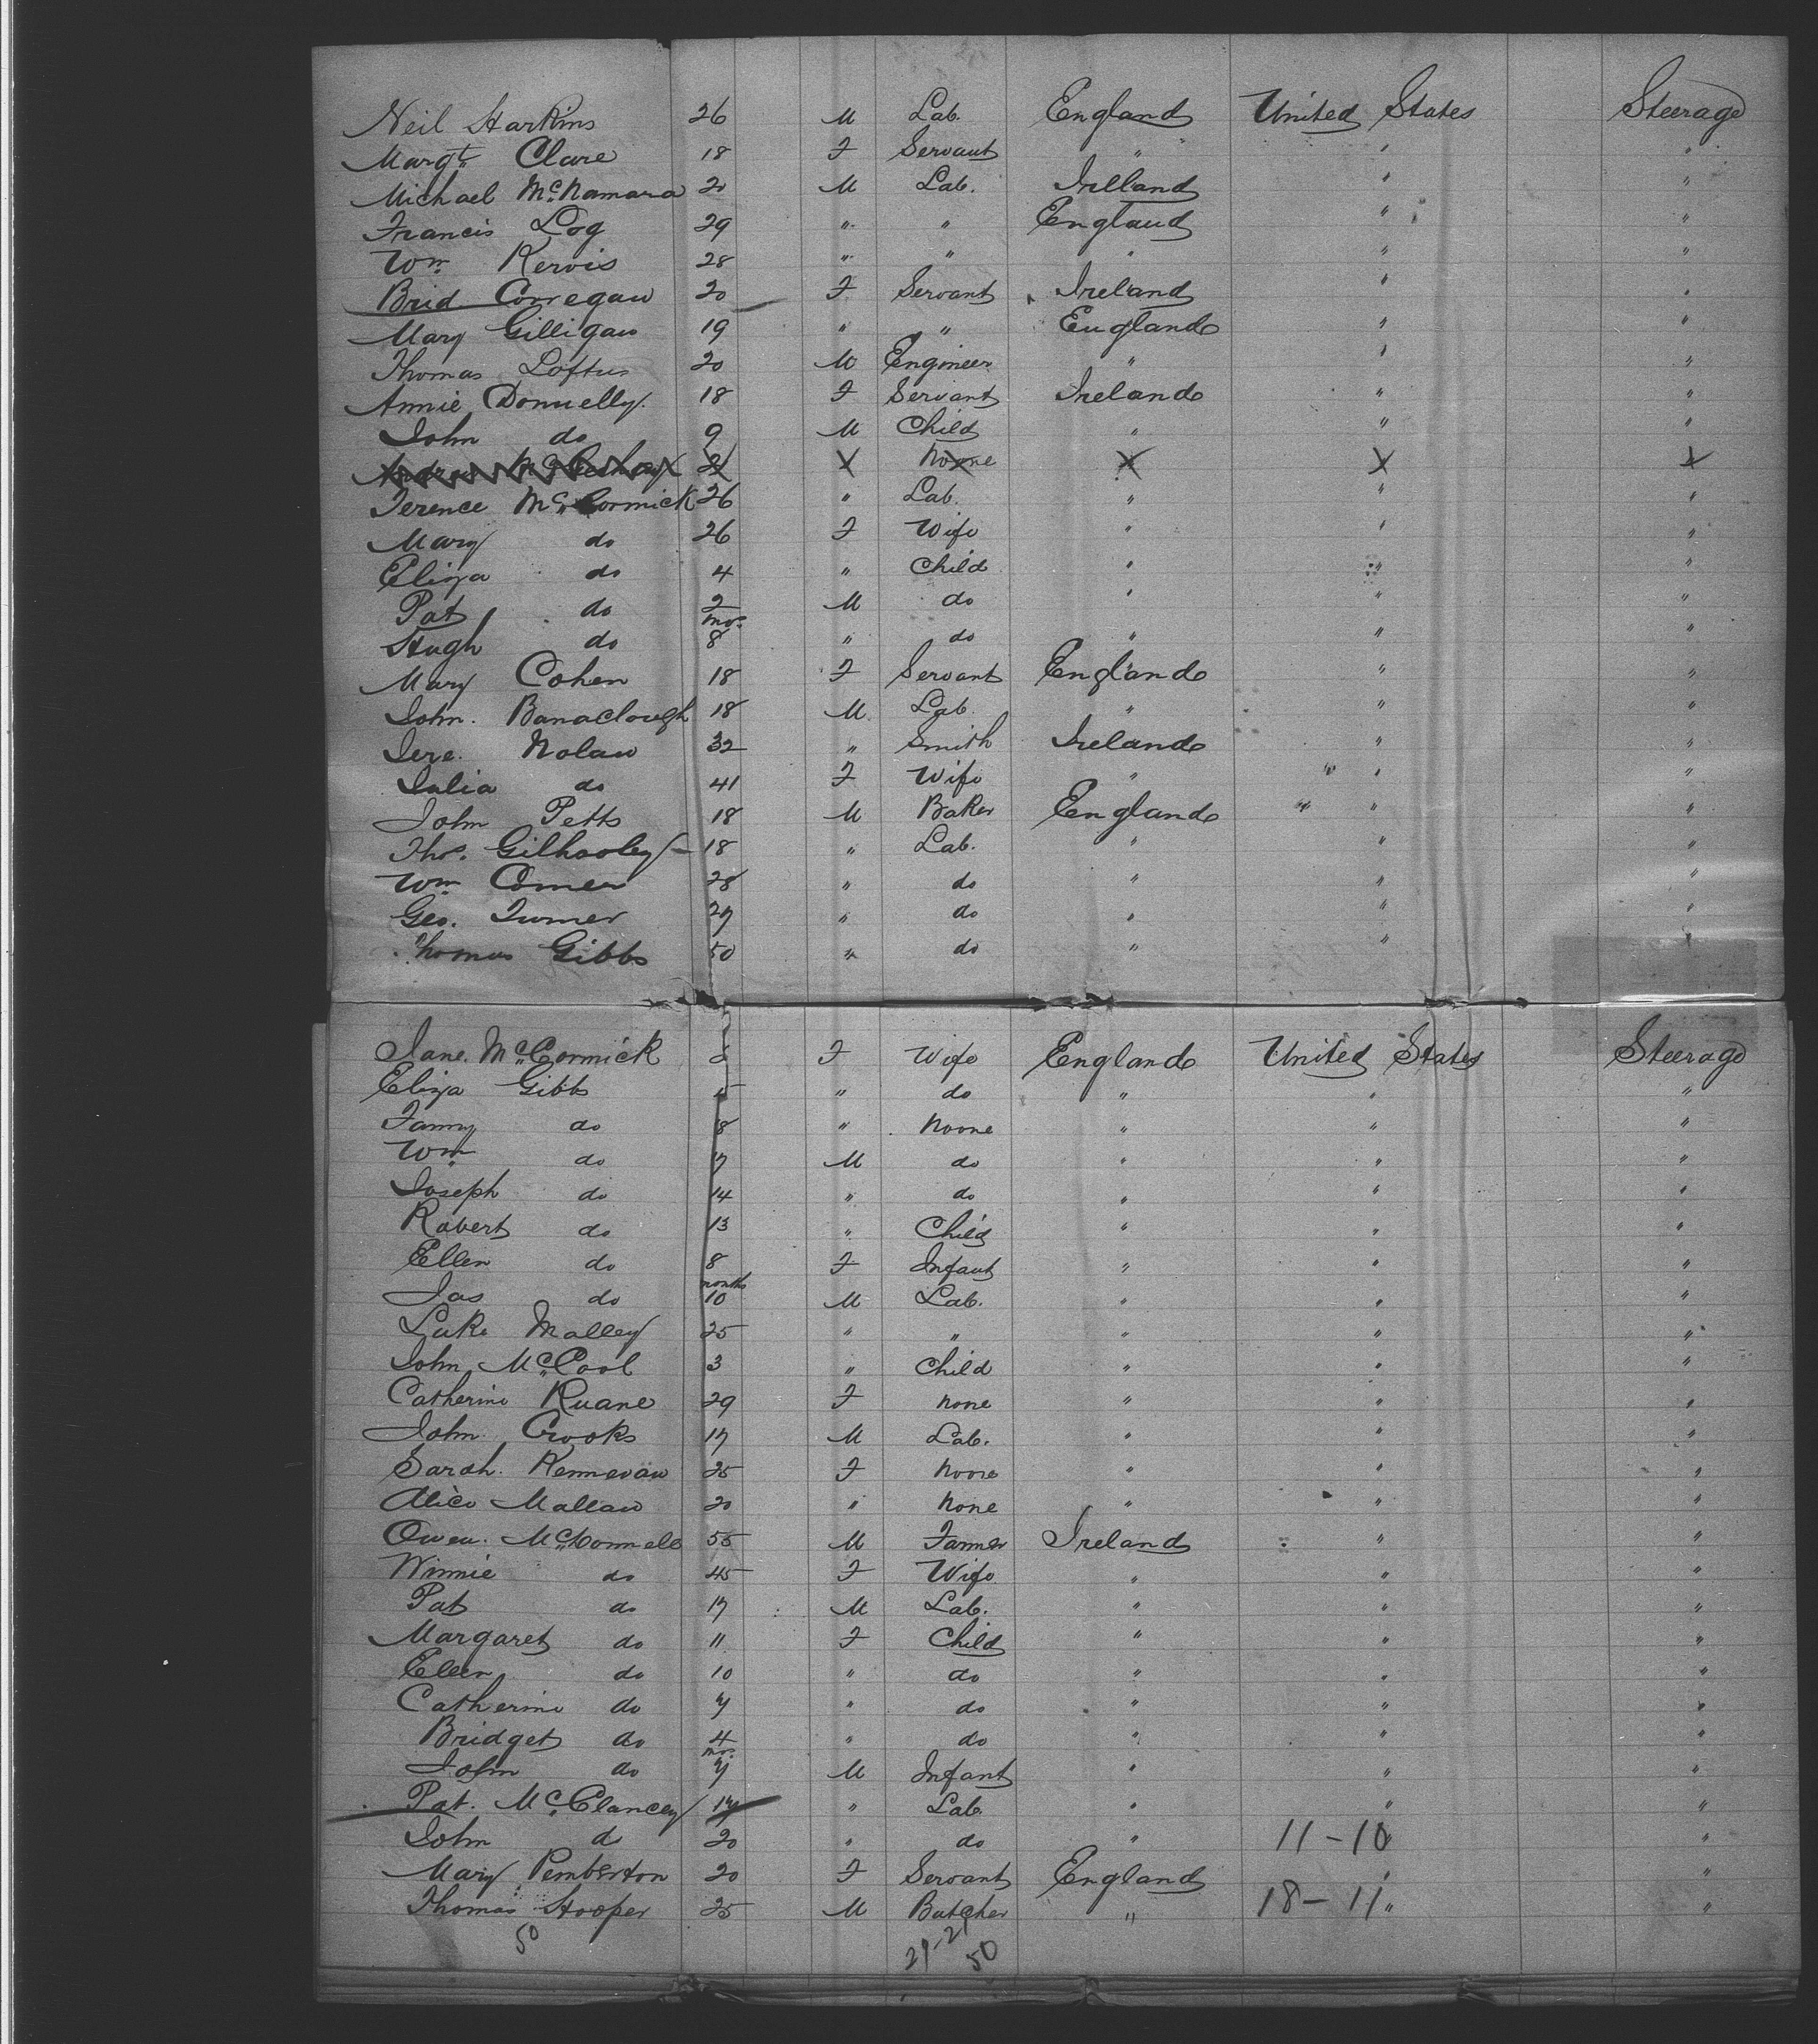 Neil Harkins 26 M Lab. England United States Steerage
Margt. Clare 18 F Servant " " "
Michael McNamara 20 M Lab. Ireland " "
Francis Log 29 " " England " "
Wm. Kervis 28 " " " " "
Brid Corregan 20 F Servant Ireland " "
Mary Gilligan 19 " " England " "
Thomas Loftus 20 M Engineer " " "
Annie Donnelly. 18 F Servant Ireland " "
John do 9 M Child " " "
None
Terence McCormick 26 " Lab. " " "
Mary do 26 F Wife " " "
Eliza do 4 " Child " " "
Pat do 2 M do " " "
Hugh do mos. 8 " do " " "
Mary Cohen 18 F Servant England " "
John. Banaclough 18 M Lab. " " "
Jere. Nolan 32 " Smith Ireland " "
Julia do 41 F Wife " " "
John Petts 18 M Baker England " "
Thos. Gilhooley 18 " Lab. " " "
Wm. Comer 28 " do " " "
Geo. Turner 27 " do " " "
Thomas Gibbs 50 " do " "
Jane. McCormick F Wife England United States Steerage
Eliza Gibbs " do " " "
Fanny do 8 " None " " "
Wm. do 17 M do " " "
Joseph do 14 " do " " "
Robert do 13 " Child " " "
Ellen do 8 F Infant " " "
Jas do months 10 M Lab. " " "
Luke Malley 25 " " " " "
John McCool 3 " Child " " "
Catherine Ruane 29 F None " " "
John Crooks 17 M Lab. " " "
Sarah. Kennevan 25 F None " " "
Alice Mallan 20 " None " " "
Owen. McConnell 55 M Farmer Ireland " "
Winnie do 45 F Wife " " "
Pat do 17 M Lab. " " "
Margaret do 11 F Child " " "
Ellen do 10 " do " " "
Catherine do 7 " do " " "
Bridget do 4 " do " " "
John do mos. 7 M Infant " " "
Pat. McClancey 17 " Lab. " " "
John do 20 " do " 11-10 " "
Mary Pemberton 20 F Servant England " "
Thomas Hooper 25 M Butcher " 18-11 " "
50 29-21 50